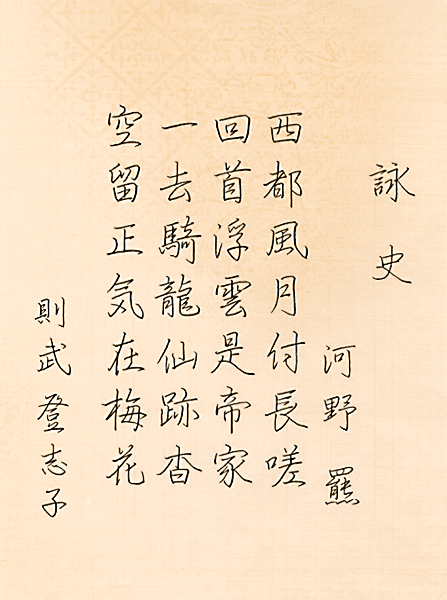 詠史
河野 羆
西都風月付長嗟
回首浮雲是帝家
一去騎龍仙跡杳
空留正気在梅花
則武登志子